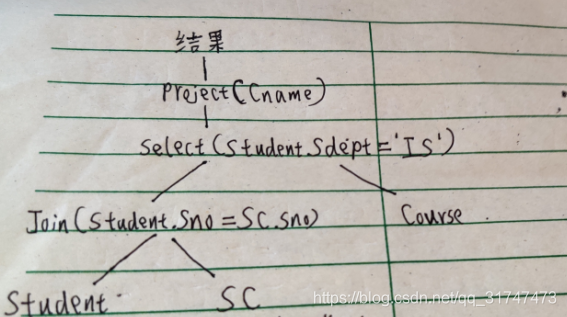 结果
Project(Cname)
Select(Student.Sdept='IS')
Join(Student.Sno=SC.Sno)
Course
Student
SC
https://blog.csdn.net/qq_31747473